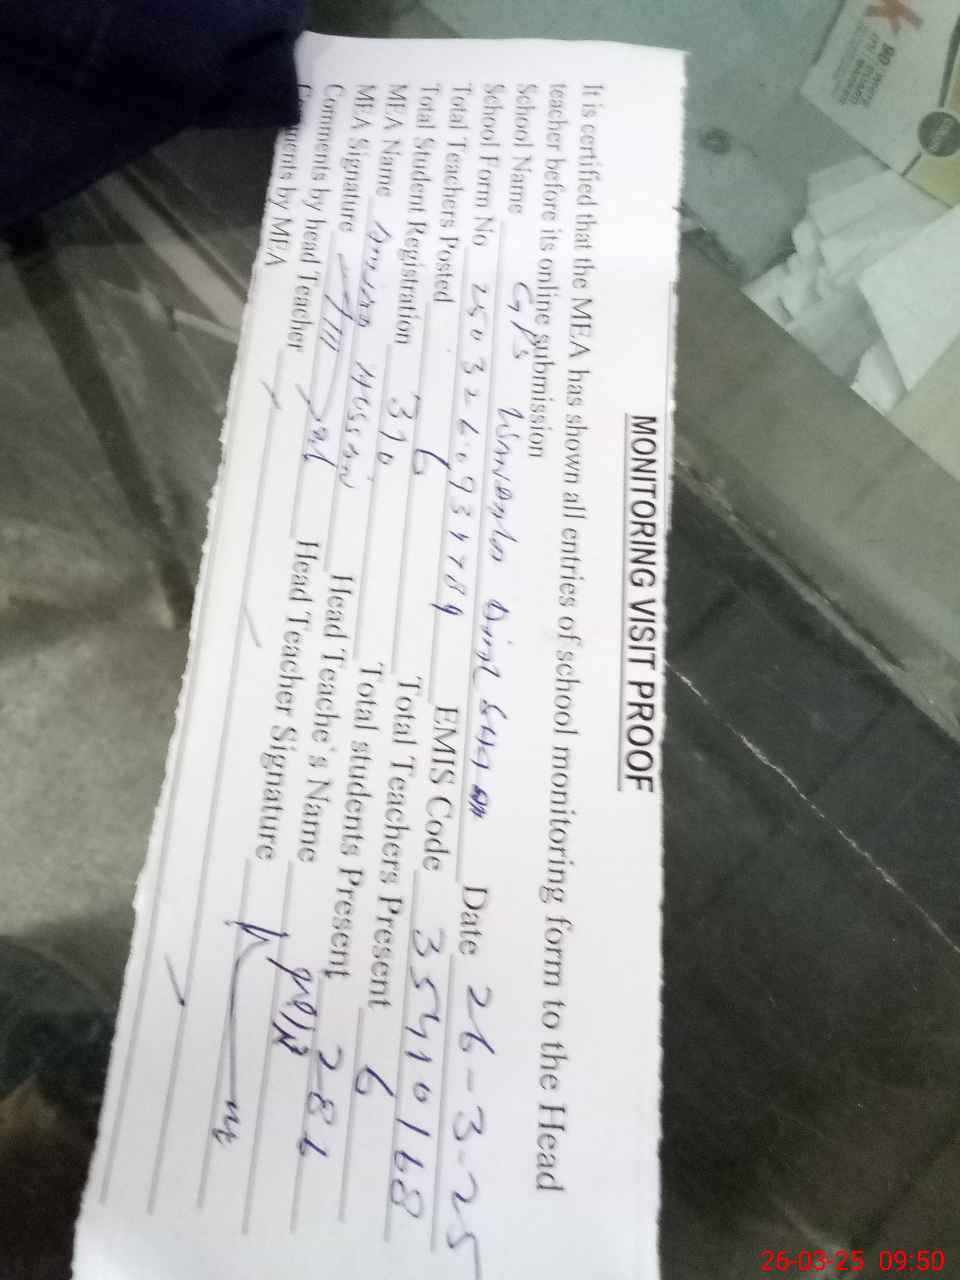 MONITORING VISIT PROOF
It is certified that the MEA has shown all entries of school monitoring form to the Head
teacher before its online submission
School Name GPS Date 26-3-25
School Form No 25032609 EMIS Code 35410168
Total Teachers Posted 6 Total Teachers Present 6
Total Student Registration 370 Total students Present 286
MEA Name Hussain Head Teache's Name
MEA Signature Head Teacher Signature
Comments by head Teacher
Comments by MEA
26-03-25 09:50